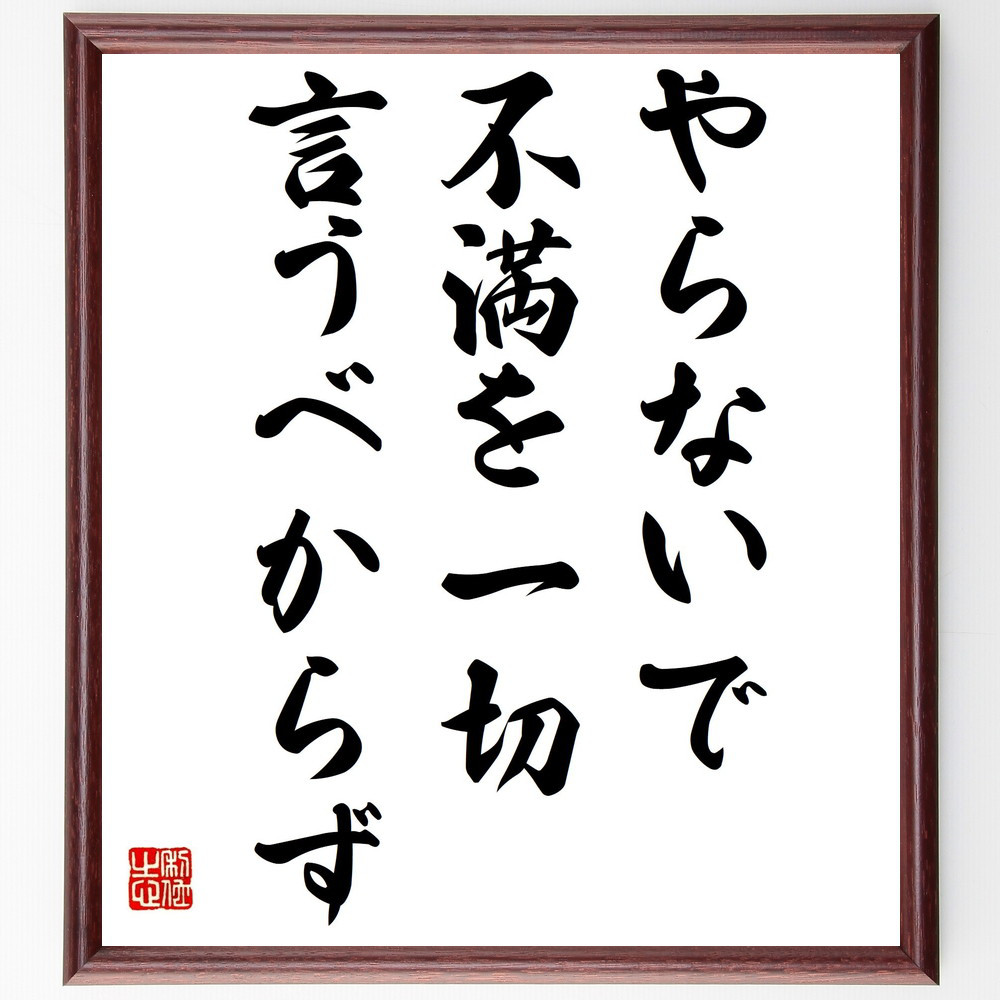 やらないで
不満を一切
言うべからず